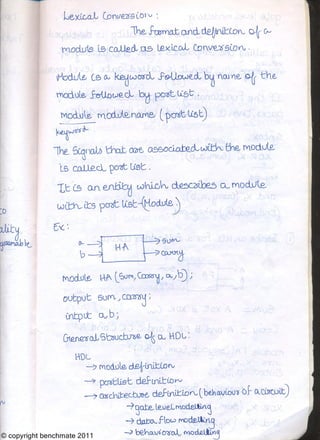 Lexical Conversion :
The format and definition of a
module is called as lexical conversion.
Module is a keyword followed by name of the
module followed by port list.
Module modulename (port list)
keyword
The Signals that are associated with the module
is called port list.
It is an entity which describes a module
with its port list (Module)
Ex:
a
b
HA
sum
carry
module HA (Sum, Carry, a, b);
output sum, carry;
intput a, b;
General Structure of a HDL:
HDL
→ module definition
→ portlist definition
→ architecture definition (behaviour of a circuit)
→ gate level modelling
→ data flow modelling
→ behavioral modelling
© copyright benchmate 2011